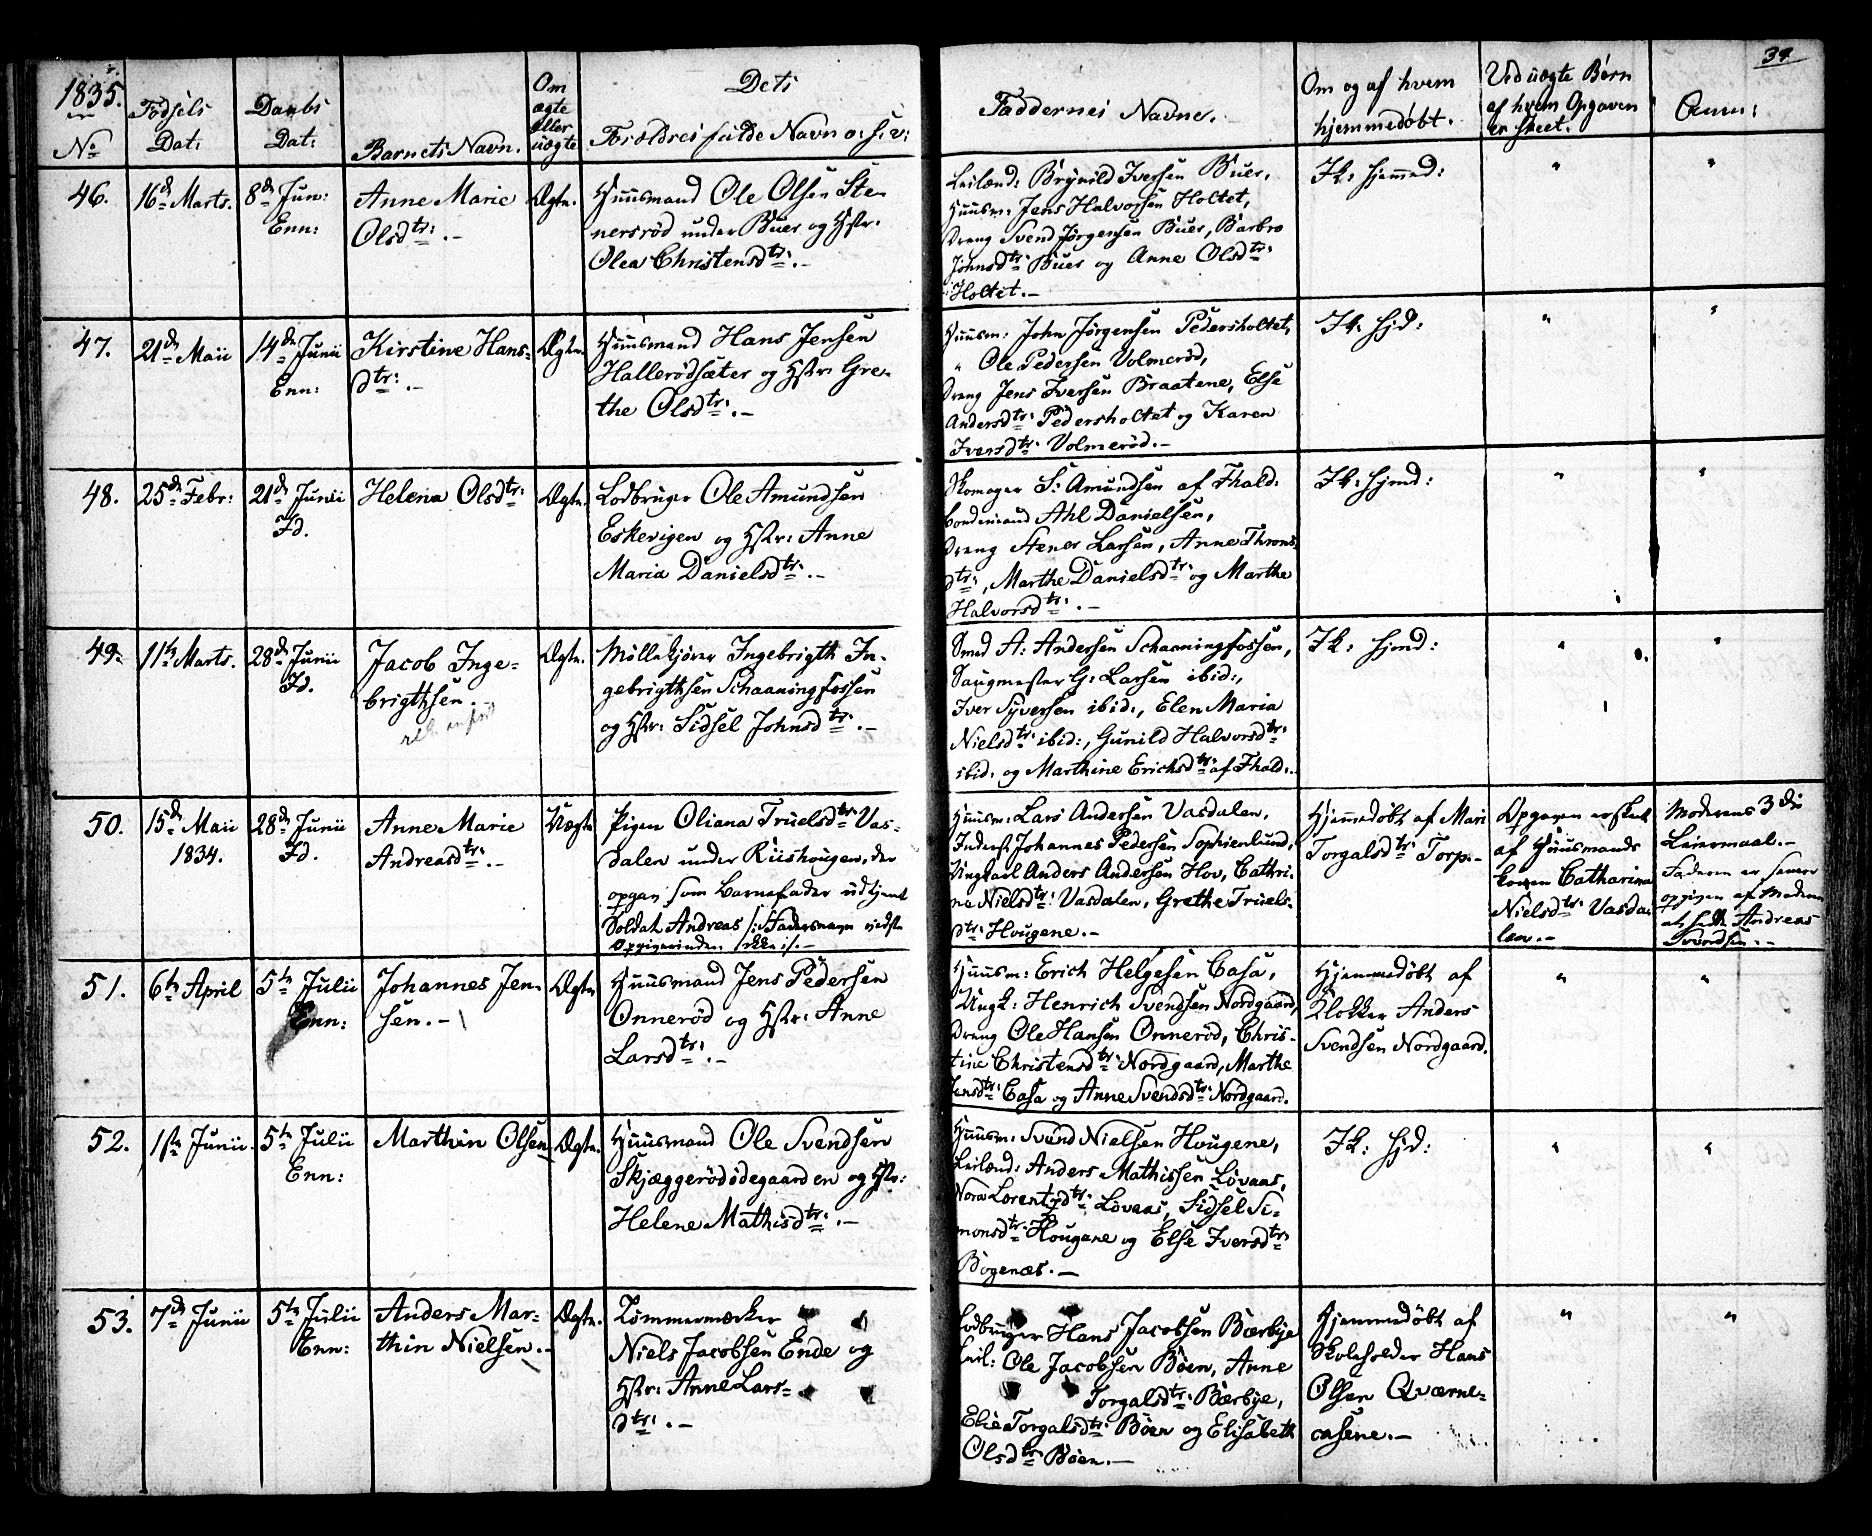 34
1835.
No
Fødsels
Dat:
Daabs
Dat:
Barnets Navn.
Om
ægte
eller
uægte
Dets
Forældres fulde Navn o: s: v:
Faddernes Navne.
Om og af hvem
hjemmedøbt.
Ved uægte Børn
af hvem Opgaven
er skeet.
Anm:
46.
16d Marts.
8d Jun:
Enn:
Anne Marie
Olsdtr: . -
Ægte.
Huusmand Ole Olsen Ste-
nersrød under Buer og Hstr:
Olea Christensdtr: . -
Leilænd: Brynild Iversen Buer,
Huusm: Jens Halvorsen Holtet,
Dreng Svend Jørgensen Buer, Barbro
Johnsdtr: Buer og Anne Olsdtr:
Holtet. -
Ik: hjemmd:
"
"
47.
21d Maii
14d Junii
Enn:
Kirstine Hans-
dtr: . -
Ægte.
Huusmand Hans Jensen
Hallerødsæter og Hstr: Gre-
the Olsdtr: . -
Huusm: John Jørgensen Pedersholtet,
" Ole Pedersen Volmerød,
Dreng Jens Iversen Braatene, Else
Andersdtr: Pedersholtet og Karen
Iversdtr: Volmerød. -
Ik: hjd:
"
"
48.
25d Febr:
21d Junii
Id.
Helena Olsdtr:
Ægte.
Lodbruger Ole Amundsen
Eskevigen og Hstr: Anne
Maria Danielsdtr: . -
Skomager S: Amundsen af Fhald:
Bondemand Ahl Danielsen,
Dreng Stener Larsen, Anne Throns-
dtr:, Marthe Danielsdtr: og Marthe
Halvorsdtr: . -
Ik: hjmd:
"
"
49.
11te Marts.
28d Junii
Id.
Jacob Inge-
brigthsen.
Ægte.
Møllekjører Ingebrigth In-
gebrigthsen Schaaningfossen
og Hstr: Sidsel Johnsdtr: . -
Smed A: Andersen Schaaningfossen,
Saugmester G: Larsen ibid:,
Iver Syversen ibid:, Elen Maria
Nielsdtr: ibid:, Gunild Halvorsdtr:
ibid: og Marthine Erichsdtr: af Fhald:.
Ik: hjmd:
"
"
50.
15d Maii
1834.
28d Junii
Id.
Anne Marie
Andreasdtr: . -
Uægte
Pigen Oliana Truelsdtr: Vas-
dalen under Riishougen, der
opgav som Barnefader udtjent
Soldat Andreas /: Fadersnavn vidste
Opgiverinden ikke :/. -
Huusm: Lars Andersen Vasdalen,
Inderst Johannes Pedersen Sophienlund,
Ungkarl Anders Andersen Hov, Cathri-
ne Nielsdtr: Vasdalen, Grethe Truels-
dtr: Hougene. -
Hjemmedøbt af Mari
Torgalsdtr: Torp. -
Opgaven er skeet
af Huusmands
konen Catharina
Nielsdtr: Vasda-
len. -
Moderens 3die
Leiermaal. -
Faderen er senere
opgiven af Moderen
at hede Andreas
Svendsen. -
51.
6te April
5te Julii
Enn:
Johannes Jen-
sen. -
Ægte.
Huusmand Jens Pedersen
Onnerød og Hstr: Anne
Larsdtr: . -
Huusm: Erich Helgesen Casa,
Ungk: Henrich Svendsen Nordgaard,
Dreng Ole Hansen Onnerød, Chris-
tine Christensdtr: Nordgaard, Marthe
Jensdtr: Casa og Anne Svendsdtr: Nordgaard.
Hjemmedøbt af
Klokker Anders
Svendsen Nordgaard.
"
"
52.
1ste Junii
5te Julii
Enn:
Marthin Olsen
Ægte.
Huusmand Ole Svendsen
Skjæggerødødegaarden og Hstr:
Helene Mathisdtr: . -
Huusm: Svend Nielsen Hougene,
Leilænd: Anders Mathissen Løvaas,
Nora Lorentzdtr: Løvaas, Sidsel Si-
monsdtr: Hougene og Else Iversdtr:
Bogenæs. -
Ik: hjd:
"
"
53.
7d Junii
5te Julii
Enn:
Anders Mar-
thin Nielsen. -
Ægte.
Tømmermærker
Niels Jacobsen Ende og
Hstr: Anne Lars-
dtr: . -
Lodbruger Hans Jacobsen Bærbye
Leil: Ole Jacobsen Böen, Anne
Torgalsdtr: Bærbye,
Elie Torgalsdtr: Böen og Elisabeth
Olsdtr: Böen. -
Hjemmedøbt af
Skoleholder Hans
Olsen Qværne-
casene. -
"
"